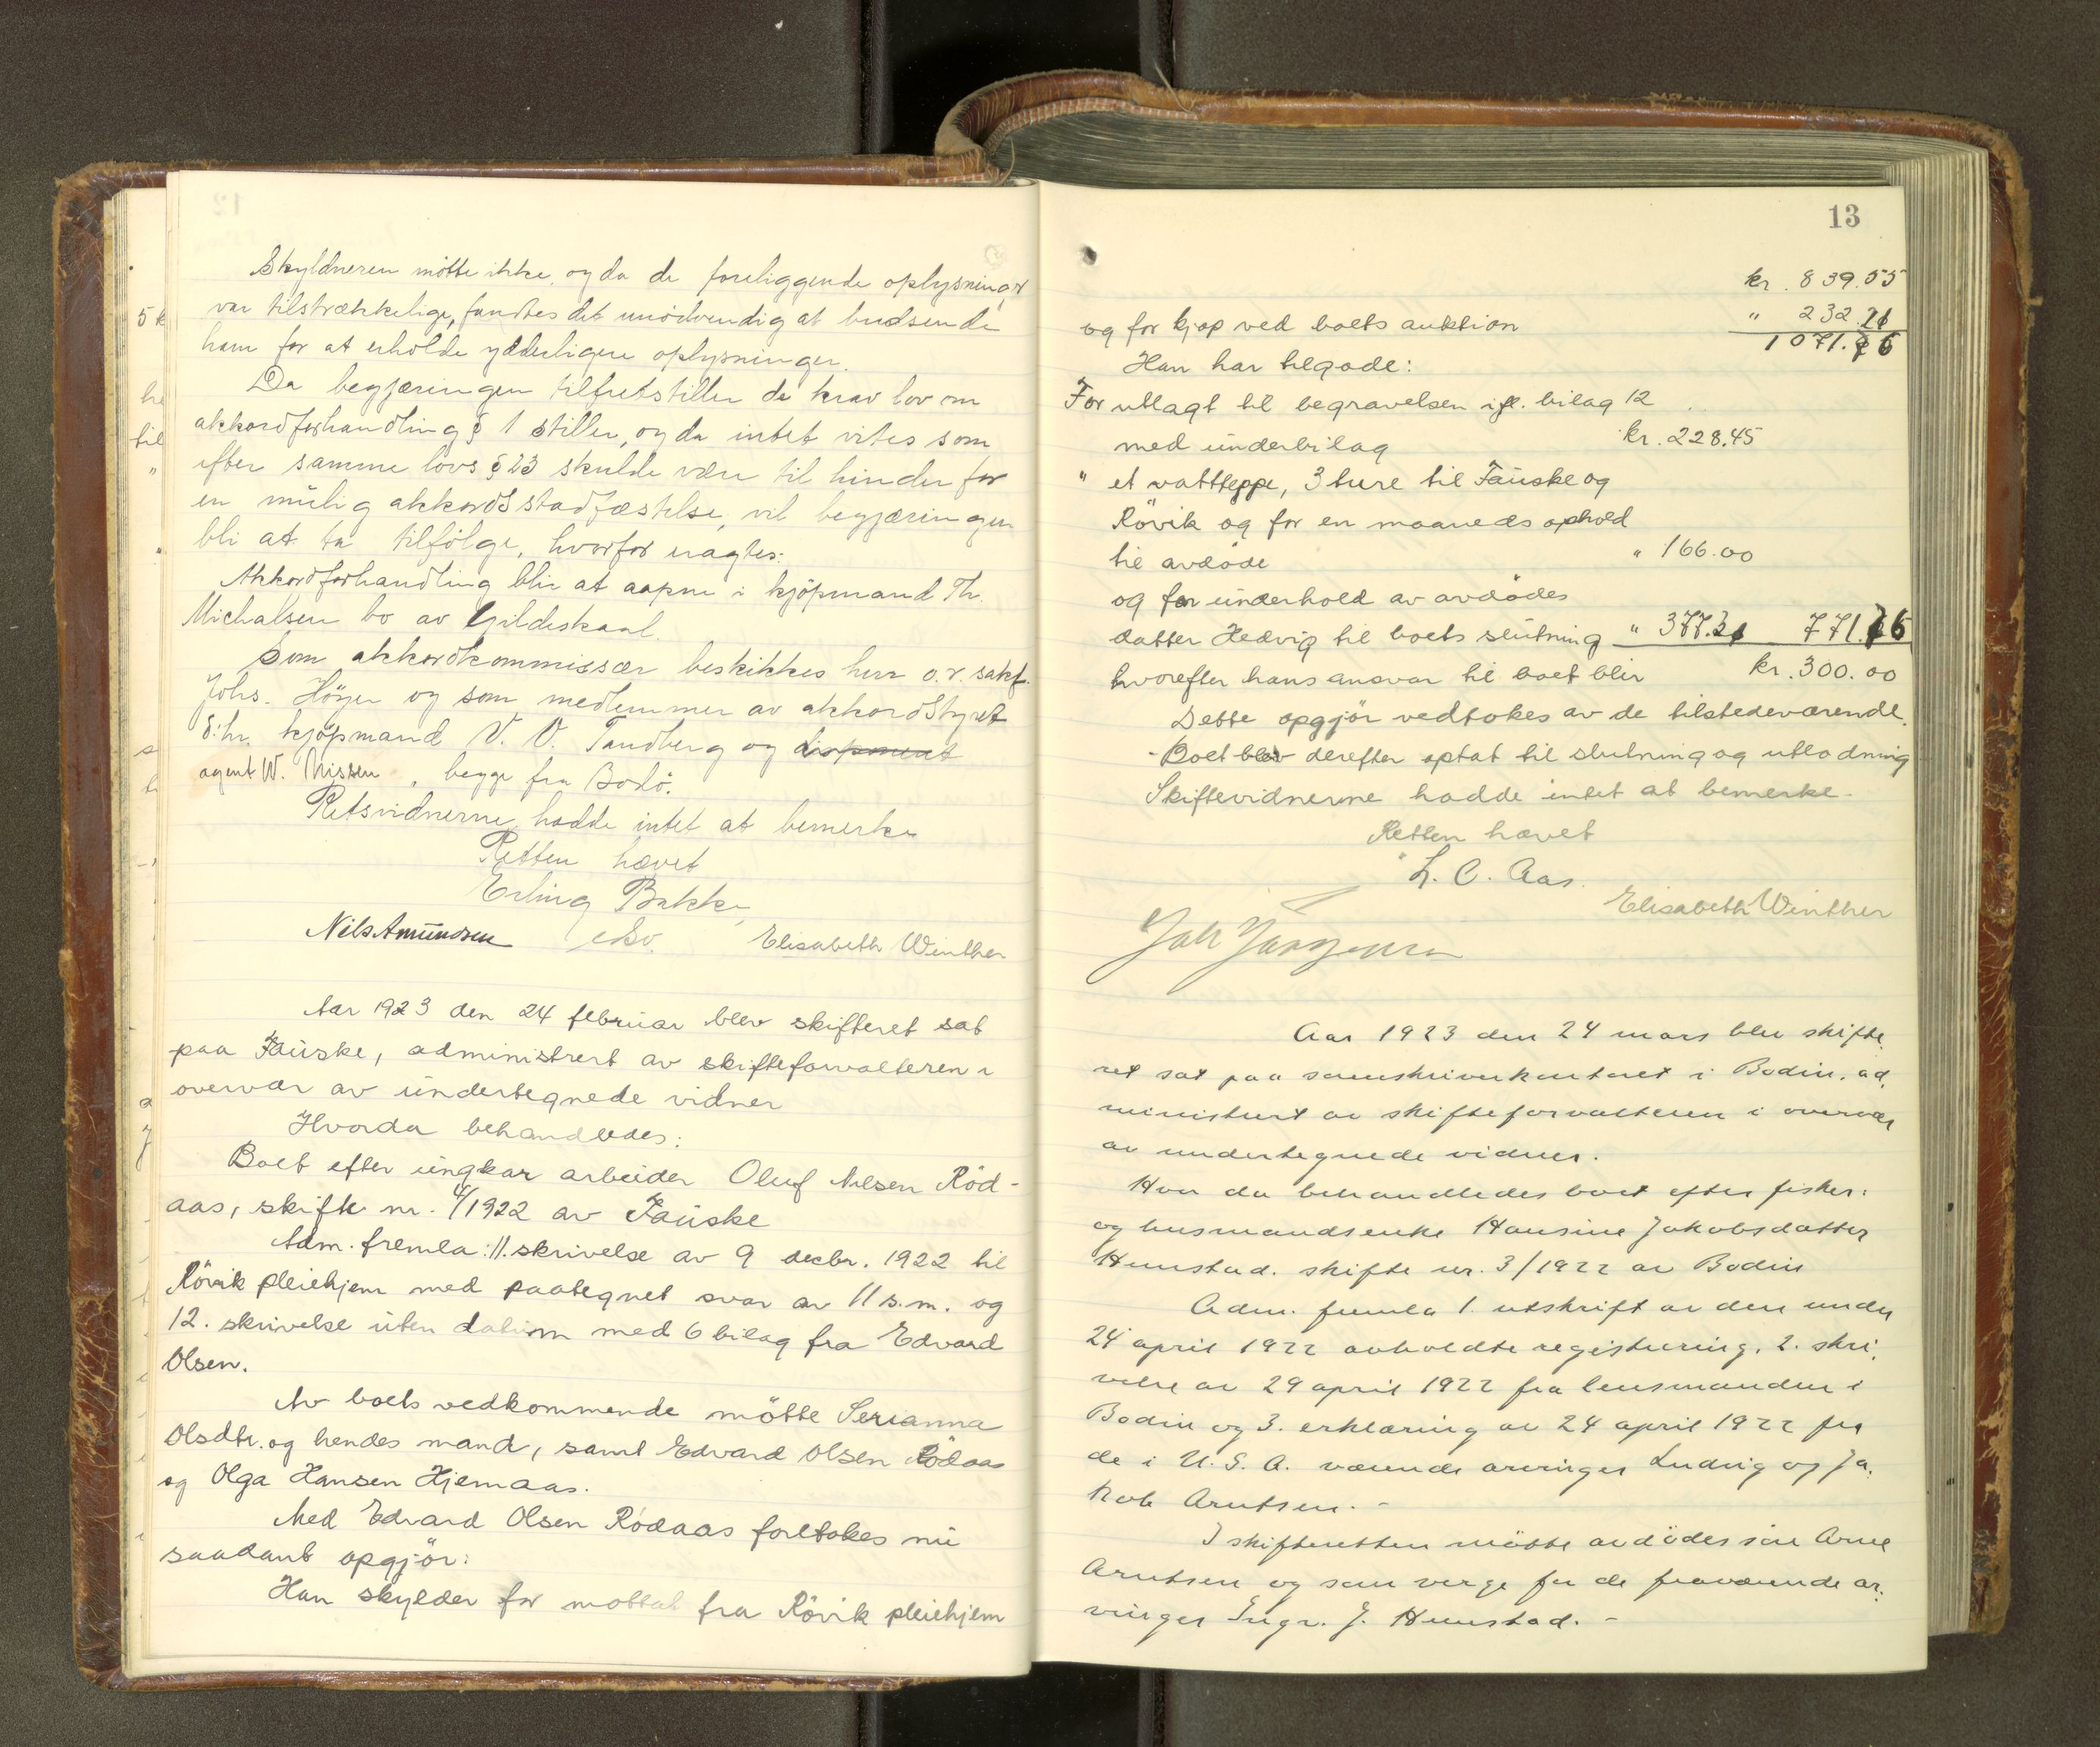 Skyldneren mötte ikke, og da de foreliggende oplysninger
var tilstrækkelige, fandtes det unödvendig at budsende
ham for at erholde ydderligere oplysninger.
Da begjæringen tilfredsstiller de krav lov om
akkordforhandling § 1 stiller, og da intet vites som
efter samme lovs § 23 skulde være til hinder for
en mulig akkordsstadfæstelse, vil begjæringen
bli at ta tilfölge, hvorfor eragtes:
Akkordforhandling blir at aapne i kjöpmand Th.
Michalsen bo av Gildeskaal.
Som akkordkommissær beskikkes herr o.r. sakf.
Johs. Höyer og som medlemmer av akkordstyret
d:hr. kjöpmand V. O. Tandberg og disponent
agent W. Nissen, begge fra Bodö.
Retsvidnerne hadde intet at bemerke
Retten hævet
Erling Bakke
Nils Amundsen eks. Elisabeth Winther
Aar 1923 den 24 februar blev skifteret sat
paa Fauske, administrert av skifteforvalteren i
overvær av undertegnede vidner
Hvorda behandledes:
Boet efter ungkar arbeider Oluf Nilsen Röd-
aas, skifte nr. 4/1922 av Fauske
Adm. fremla: 11. skrivelse av 9 decbr. 1922 til
Rövik pleiehjem med paategnet svar av 11 s.m. og
12. skrivelse uten datum med 6 bilag fra Edvard
Olsen.
Av boets vedkommende mötte Serianna
Olsdtr. og hendes mand, samt Edvard Olsen Rödaas
og Olga Hansen Hjemaas.
Med Edvard Olsen Rödaas foretokes nu
saadant opgjör:
Han skylder for mottat fra Rövik pleiehjem
13
kr. 839.55
og for kjøp ved boets auktion " 232.21
1071.76
Han har tilgode:
For utlagt til begravelsen ifl. bilag 12
med underbilag kr. 228.45
" et vattteppe, 3 ture til Fauske og
Rövik og for en maaneds ophold
til avdöde " 166.00
og for underhold av avdödes
datter Hedvig til boets slutning " 377.31 771.76
hvorefter hans ansvar til boet blir kr. 300.00
Dette opgjör vedtokes av de tilstedeværende.
- Boet blev derefter optat til slutning og utlodning
Skiftevidnerne hadde intet at bemerke.
Retten hævet
L. C. Aas.
Elisabeth Winther
Aar 1923 den 24 mars blev skifte
ret sat paa sorenskriverkontoret i Bodin, ad
ministrert av skifteforvalteren i overvær
av undertegnede vidner.
Hvor da behandledes boet efter fisker
og husmandsenke Hansine Jakobsdatter
Hunstad. skifte nr. 3/1922 av Bodin
Adm. fremla 1. utskrift av den under
24 april 1922 avholdte registrering, 2. skri
velse av 29 april 1922 fra lensmanden i
Bodin og 3. erklæring av 24 april 1922 fra
de i U.S.A. værende arvinger Ludvig og Ja
kob Arntsen. -
I skifteretten mötte avdödes sön Arne
Arntsen og som verge for de fraværende ar
vinger Ingv. J. Hunstad. -